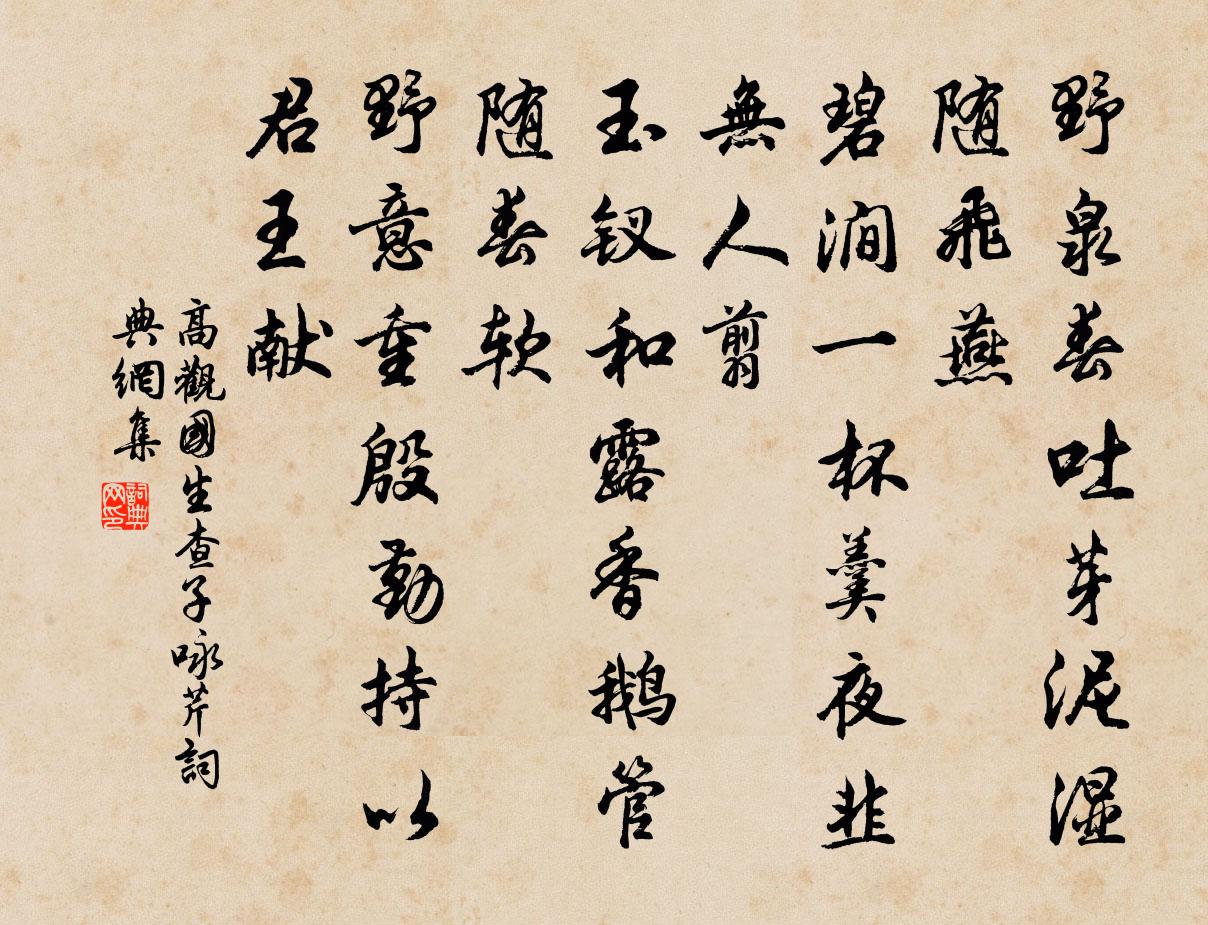 野泉春吐芽泥湿
随飛燕
碧澗一杯羹夜韭
無人翦
玉钗和露香鵝管
随春软
野意重殷勤持以
君王献
高觀國生查子咏芹詞
典網集
詞典
网印